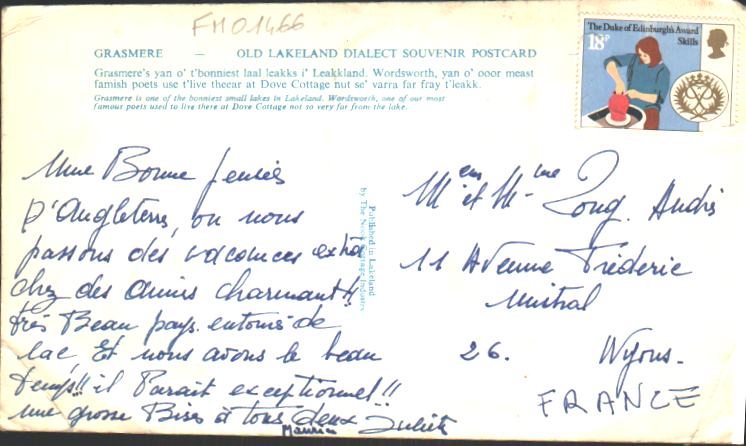 FM01466
GRASMERE — OLD LAKELAND DIALECT SOUVENIR POSTCARD
Grasmere's yan o' t'bonniest laal leakks i' Leakkland. Wordsworth, yan o' ooor meast
famish poets use t'live theear at Dove Cottage nut se' varra far fray t'leakk.
Grasmere is one of the bonniest small lakes in Lakeland. Wordsworth, one of our most
famous poets used to live there at Dove Cottage not so very far from the lake.
The Duke of Edinburgh's Award
Skills
18P
Une Bonne pensées
d'Angleterre, ou nous
passons des vacances extra
chez des amis charmant!!
très Beau pays. entourés de
lac Et nous avons le beau
temps!! il Parait exceptionnel!!
une grosse Bises à tous deux Juliette
Maurice
Published in Lakeland
by The Nook Cottage Industry
et Mme André
11 Avenue Fréderic
Mistral
26. Nyons.
FRANCE